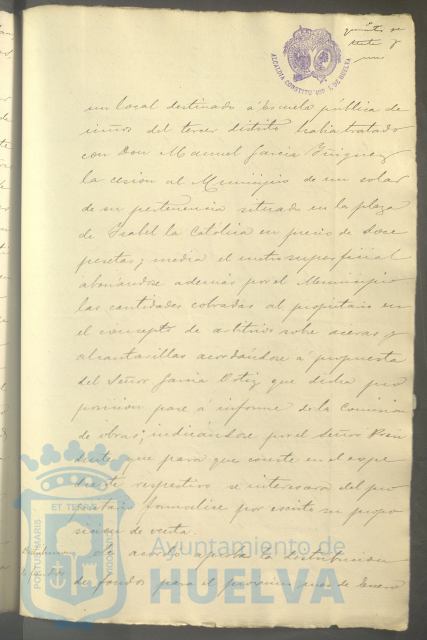 ALCALDIA CONSTITUCIONAL DE HUELVA
un local destinado á Escuela pública de
niños del tercer distrito habia tratado
con Don Manuel Garcia Iñiguez
la cesion al Municipio de un solar
de su pertenencia situado en la plaza
de Isabel la Catolica en precio de doce
pesetas y media el metro superficial
abonandose ademas por el Municipio
las cantidades cobradas al propietario en
el concepto de arbitrios sobre aceras y
alcantarillas acordándose á propuesta
del Señor Garcia Ortiz que dicha pro
posicion pase á informe de la Comision
de obras; indicándose por el Señor Presi
dente que para que conste en el expe
diente respectivo se interesara del pro
pietario formalice por escrito su propo
sicion de venta.
Se acordó aprobar la distribucion
de fondos para el proximo mes de Enero
PORTUS MARIS ET TERRAE CUSTODIA
Ayuntamiento de
HUELVA